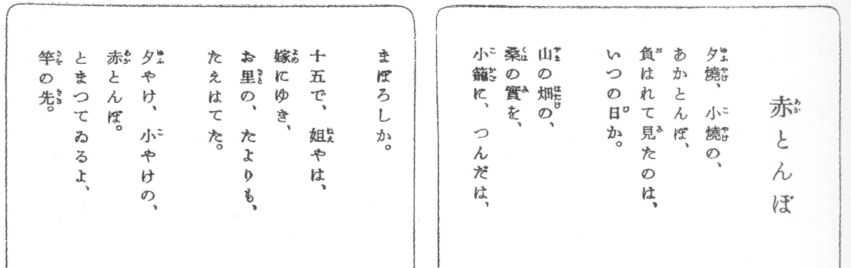 赤とんぼ
夕燒、小燒の、
あかとんぼ、
負はれて見たのは、
いつの日か。
山の畑の、
桑の實を、
小籠に、つんだは、
まぼろしか。
十五で、姐やは、
嫁にゆき、
お里の、たよりも、
たえはてた。
夕やけ、小やけの、
赤とんぼ。
とまつてゐるよ、
竿の先。